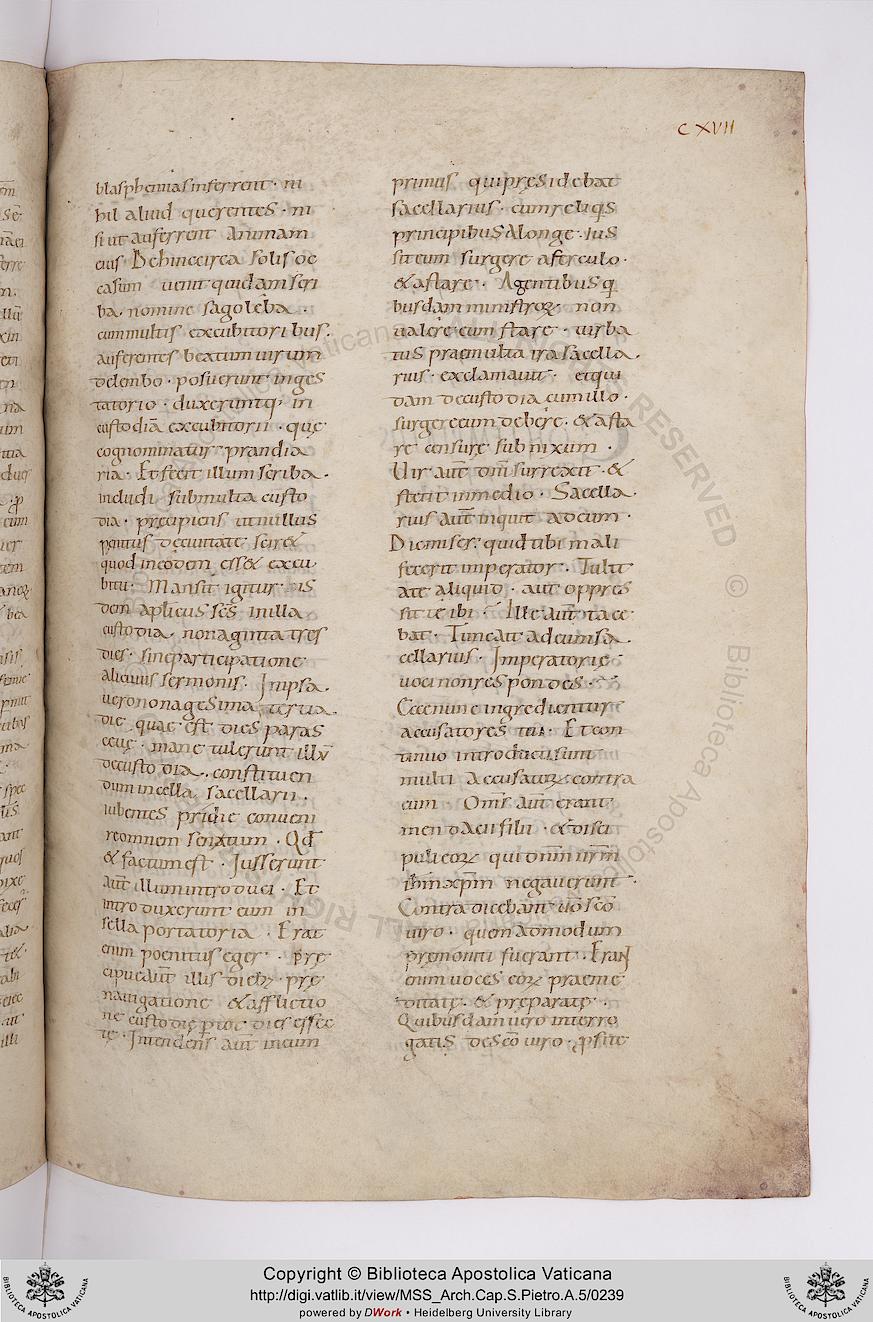 C XVII
blasphemias inferrent · ni
hil aliud querentes · ni
si ut auferrent animam
eius Dehinc circa solis oc
casum uenit quidam scri
ba · nomine sagoleba ·
cum multis excubitoribus ·
auferentes beatum uirum
delembo · posuerunt in ges
tatorio · duxeruntq; in
custodiā excubitorii · quę
cognominatur prandia
ria · Et fecit illum scriba ·
includi sub multa custo
dia · precipiens ut nullus
penitus decuitate scir&
quod ineodem ess& excu
bitu · Mansit igitur is
dem aplicus scs in illa
custodia · nonaginta tres
dies · sine participatione
alicuius sermonis · In ipsa ·
uero nonagesima tertia ·
die quae est dies paras
ceue · mane tulerunt illū
decustodia · constituen
dum in cella sacellarii ·
iubentes pridie conueni
re omnem senatum · Qd
& factum est · Iusserunt
aut illum introduci · Et
introduxerunt eum in
sella portatoria · Erat
enim poenitus eger · prę
cipue aut illis dieb; prę
nauigatione & afflictio
ne custodie p tot dies effec
te · Intendens aut in eum
primus qui pręsidebat
sacellarius · cum reliqs
principibus alonge · ius
sit eum surgere aferculo ·
& astare · Agentibus q
busdam ministroꝝ · non
ualere eum stare · turba
tus prae multa ira sacella ·
rius · exclamauit · et qui
dam decustodia cum illo ·
surgere eum debere · & asta
re censure subnixum ·
Uir aut dni surrexit · &
stetit in medio · Sacella ·
rius aut inquit adeum ·
Dic miser · quid tibi mali
fecerit imperator · Tulit
a te aliquid · aut oppres
sit te ibi ? Ille aut tace
bat · Tunc ait adeum sa ·
cellarius · Imperatorie
uoci non respondes ·
Ecce nunc ingredientur
accusatores tui · Et con
tinuo introducti sunt
multi accusatoꝝ contra
eum Oms aut erant
mendacii filii · & disci
puli eoꝝ qui dnm nrm
ihm xpm negauerunt ·
Contra dicebant uo sco
uiro · quem admodum
premoniti fuerant · Erant
enim uoces eoꝝ praeme
ditatę · & preparatę ·
Quibusdam uero interro
gatis de sco uiro · p site
Copyright © Biblioteca Apostolica Vaticana
http://digi.vatlib.it/view/MSS_Arch.Cap.S.Pietro.A.5/0239
powered by DWork • Heidelberg University Library